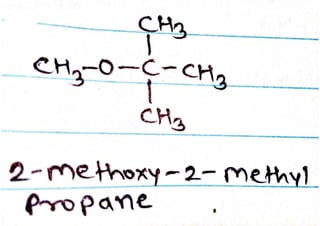 CH₃
CH₃-O-C-CH₃
CH₃
2-methoxy-2-methyl
propane